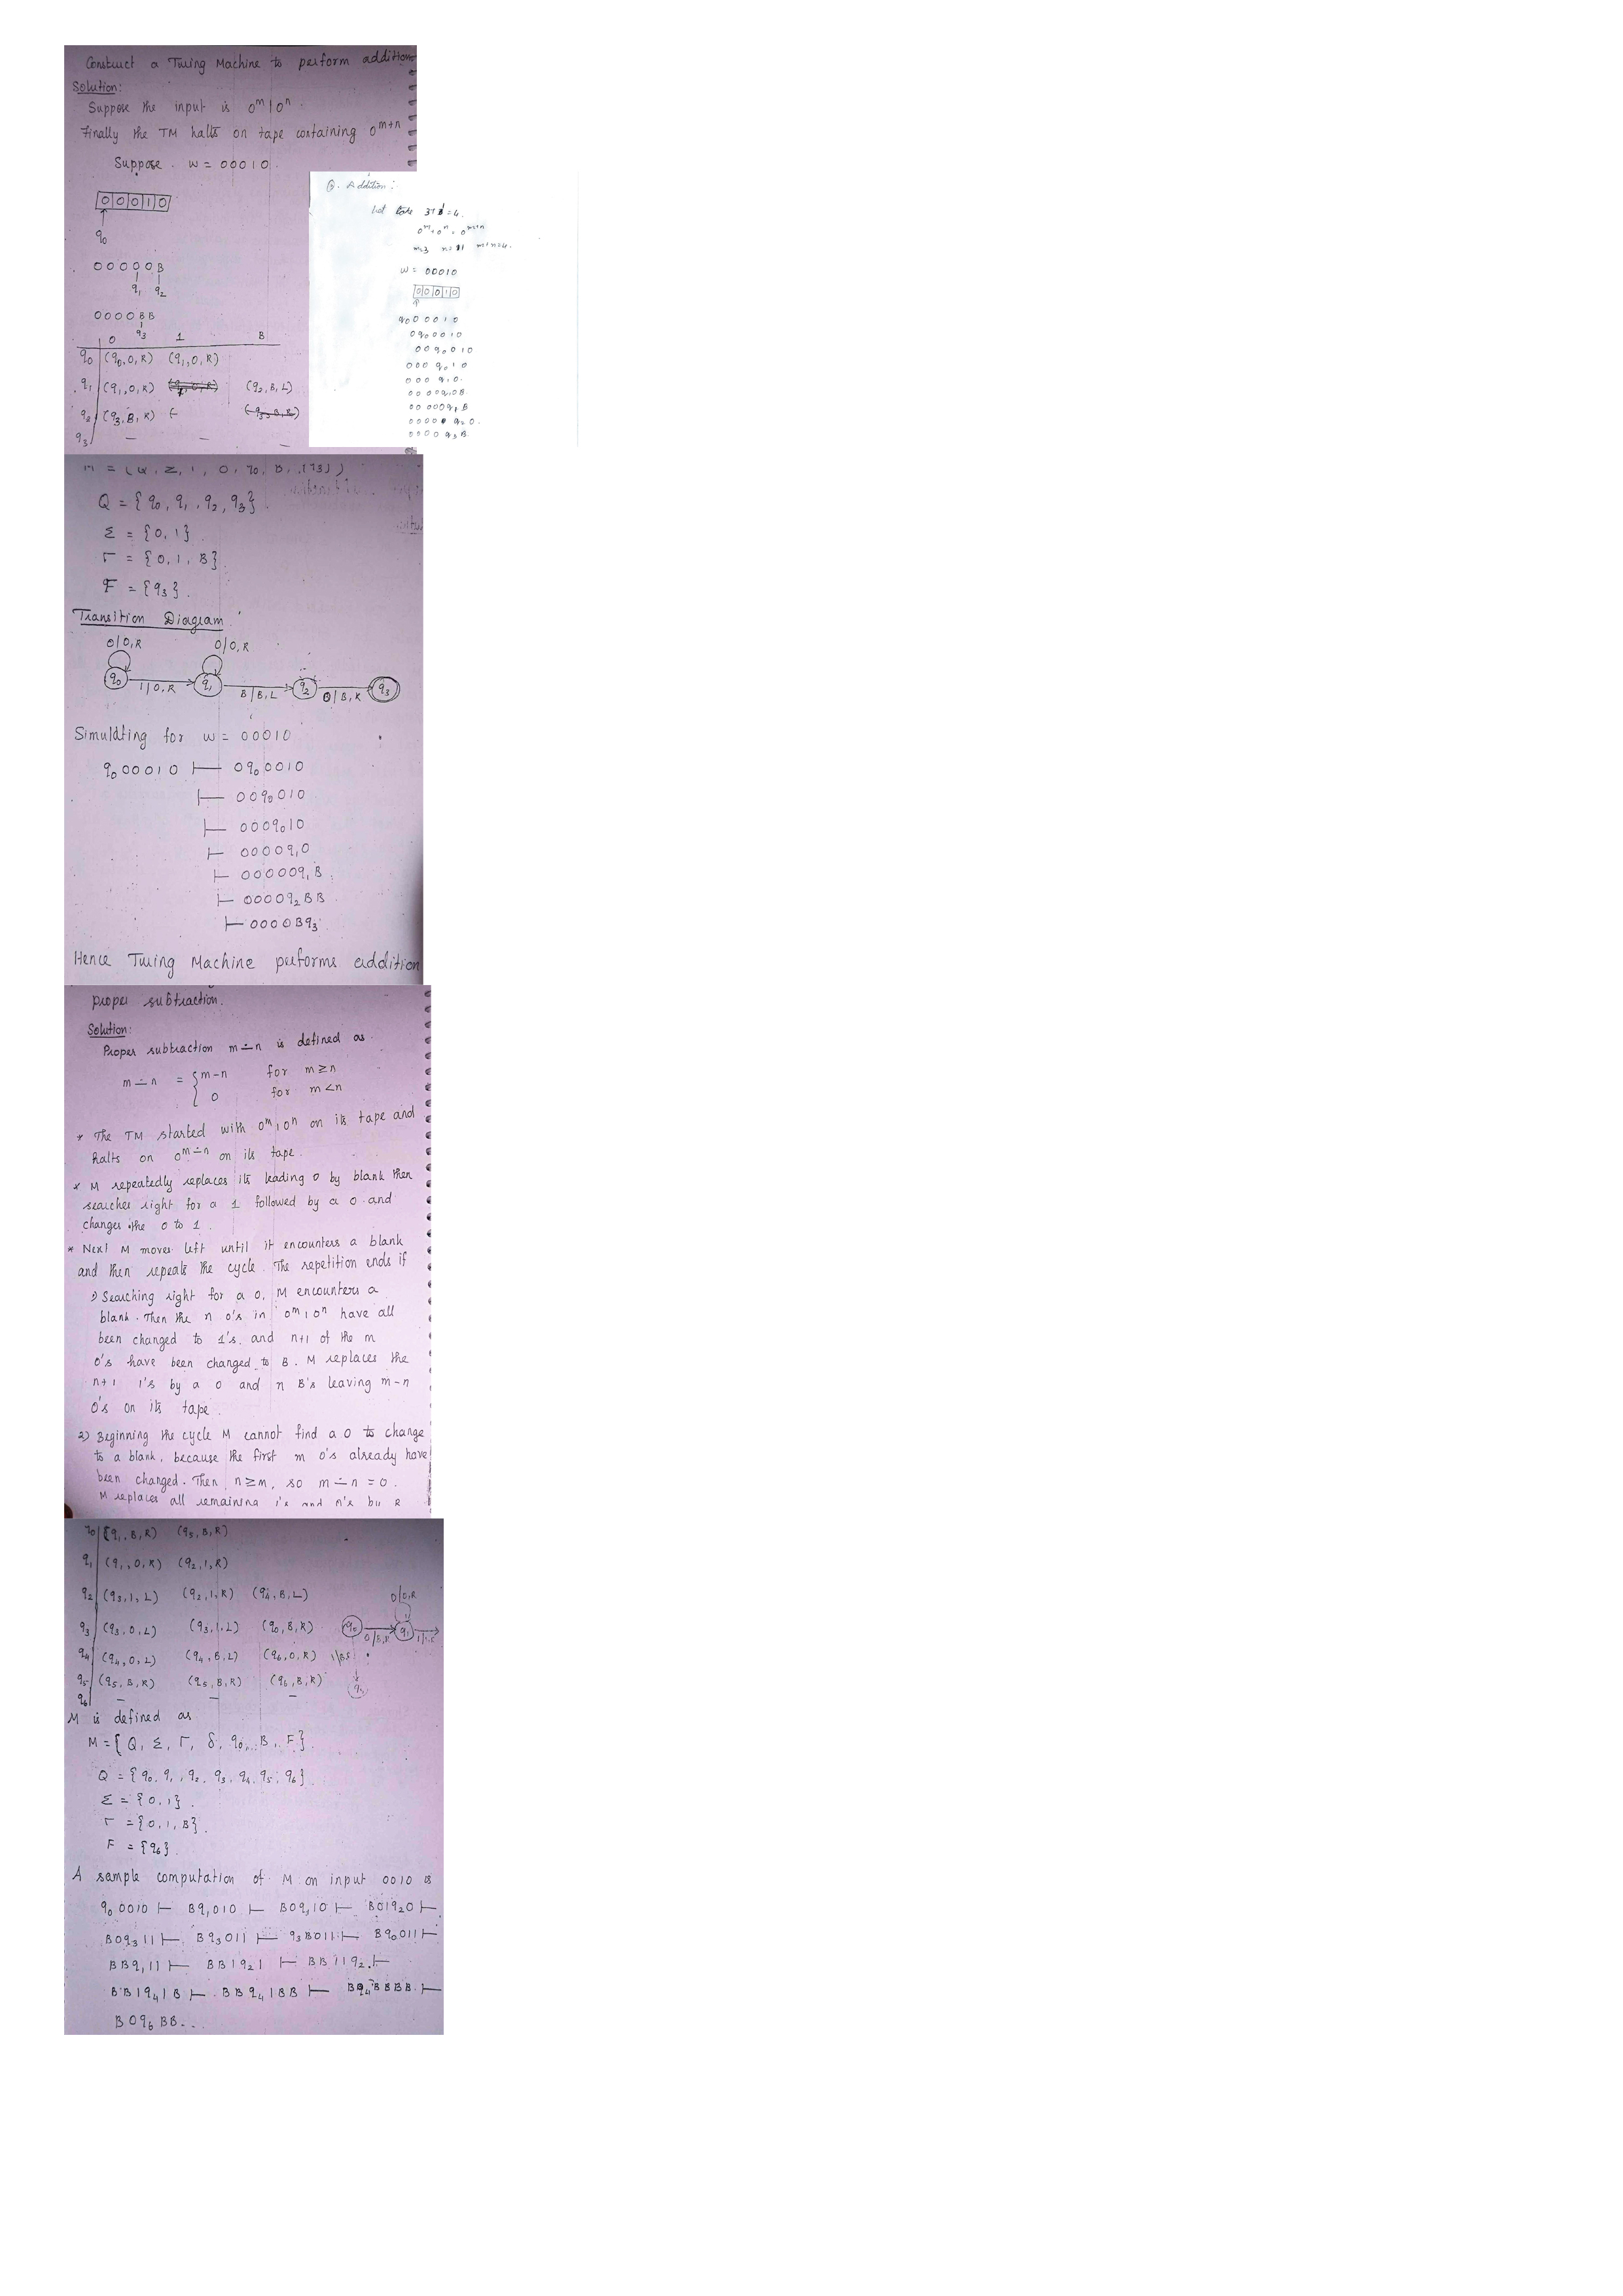 Construct a Turing Machine to perform addition
Solution:
Suppose the input is 0^m 1 0^n.
Finally the TM halts on tape containing 0^m+n
Suppose. W = 00010.
0 0 0 1 0
q0
0 0 0 0 0 B
q1 q2
0 0 0 0 B B
q3
0 1 B
q0 (q0, 0, R) (q1, 0, R)
q1 (q1, 0, R) (q2, B, L)
q2 (q3, B, R) (-
q3 - - -
Q. Addition:
Let take 3+1 = 4.
0^m + 0^n = 0^m+n
m=3 n=1 m+n=4.
W = 00010
0 0 0 1 0
q0 0 0 0 1 0
0 q0 0 0 1 0
0 0 q0 0 1 0
0 0 0 q0 1 0
0 0 0 q1 0.
0 0 0 0 q1 0 B
0 0 0 0 0 q1 B
0 0 0 0 0 q2 0.
0 0 0 0 q3 B.
Q = { q0, q1, q2, q3 }.
Σ = { 0, 1 }.
Γ = { 0, 1, B }.
F = { q3 }.
Transition Diagram.
0/0,R 0/0,R
q0 1/0,R q1 B/B,L q2 0/B,R q3
Simulating for W = 00010
q0 00010 ⊢ 0q0 0010
⊢ 00q0 010
⊢ 000q0 10
⊢ 0000q1 0
⊢ 00000q1 B.
⊢ 0000q2 BB.
⊢ 0000Bq3.
Hence Turing Machine performs addition
proper subtraction.
Solution:
Proper subtraction m ∸ n is defined as.
m ∸ n = { m-n for m ≥ n
0 for m < n
* The TM started with 0^m 1 0^n on its tape and
halts on 0^m∸n on its tape.
* M repeatedly replaces its leading 0 by blank then
searches right for a 1 followed by a 0 and
changes the 0 to 1.
* Next M moves left until it encounters a blank
and then repeats the cycle. The repetition ends if
1) Searching right for a 0, M encounters a
blank. Then the n 0's in 0^m 1 0^n have all
been changed to 1's, and n+1 of the m
0's have been changed to B. M replaces the
n+1 1's by a 0 and n B's leaving m-n
0's on its tape.
2) Beginning the cycle M cannot find a 0 to change
to a blank, because the first m 0's already have
been changed. Then n ≥ m, so m ∸ n = 0.
M replaces all remaining 1's and 0's by B
q0 (q1, B, R) (q5, B, R)
q1 (q1, 0, R) (q2, 1, R)
q2 (q3, 1, L) (q2, 1, R) (q4, B, L)
q3 (q3, 0, L) (q3, 1, L) (q0, B, R)
q4 (q4, 0, L) (q4, B, L) (q6, 0, R)
q5 (q5, B, R) (q5, B, R) (q6, B, R)
q6 - - -
0/0,R
q0 0/B,R q1
M is defined as
M = { Q, Σ, Γ, δ, q0, B, F }.
Q = { q0, q1, q2, q3, q4, q5, q6 }.
Σ = { 0, 1 }.
Γ = { 0, 1, B }.
F = { q6 }.
A sample computation of M on input 0010 is
q0 0010 ⊢ Bq1 010 ⊢ B0q1 10 ⊢ B01q2 0 ⊢
B0q3 11 ⊢ Bq3 011 ⊢ q3 B011 ⊢ Bq0 011 ⊢
BBq1 11 ⊢ BB1q2 1 ⊢ BB11q2 ⊢
BB1q4 1B ⊢ BBq4 1BB ⊢ Bq4 BBBB ⊢
B0q6 BB...